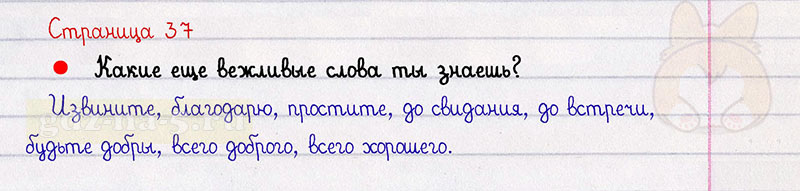 Страница 37
Какие еще вежливые слова ты знаешь?
Извините, благодарю, простите, до свидания, до встречи,
будьте добры, всего доброго, всего хорошего.